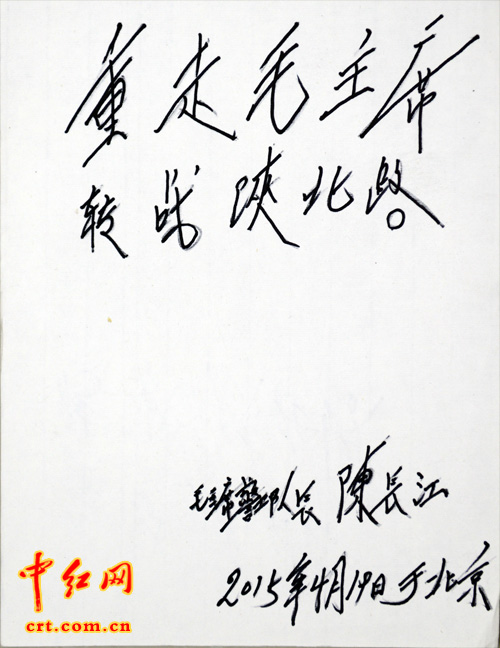 重走毛主席
转战陝北路。
毛主席警卫队长 陳長江
2015年4月19日于北京
中红网
crt.com.cn